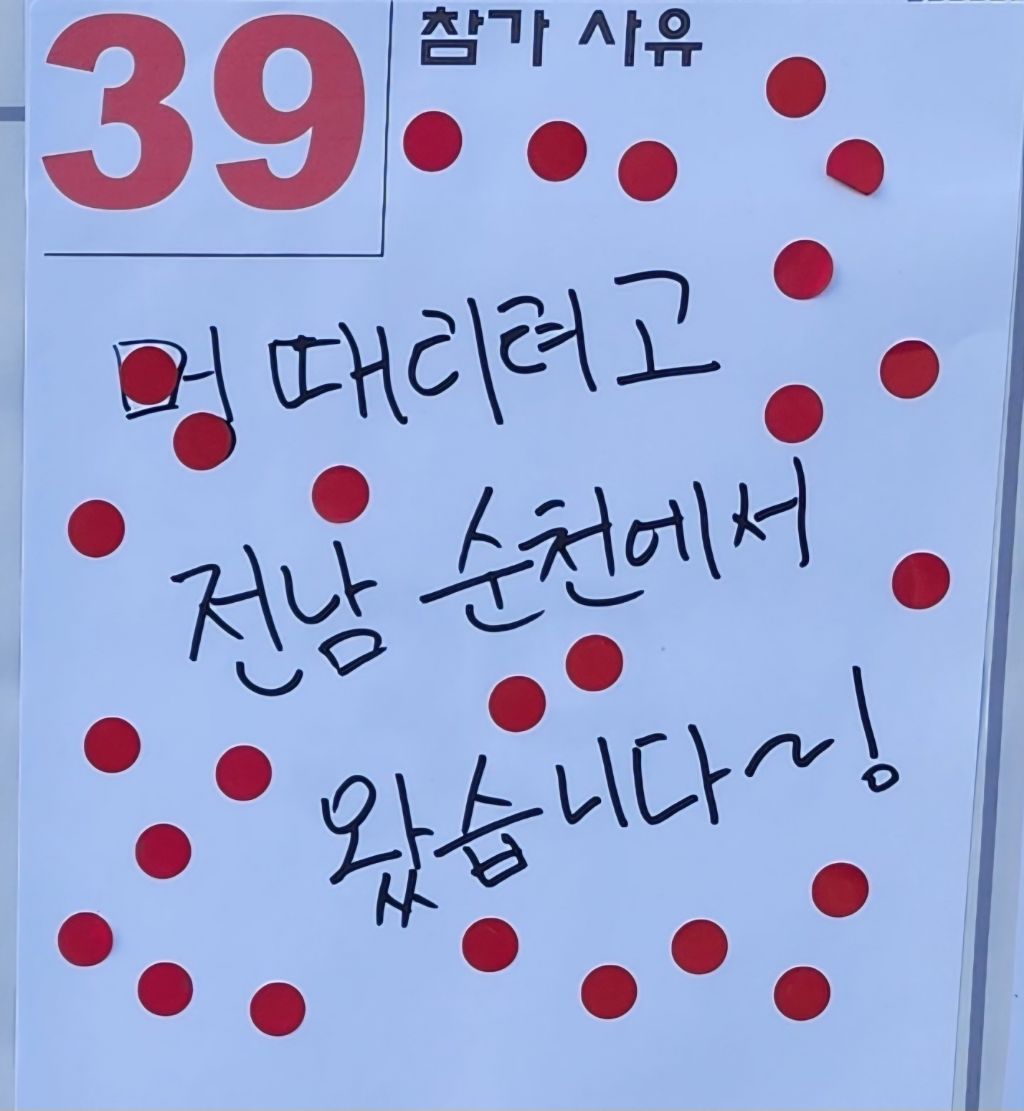 39
참가 사유
멍 때리려고
전남 순천에서
왔습니다~!